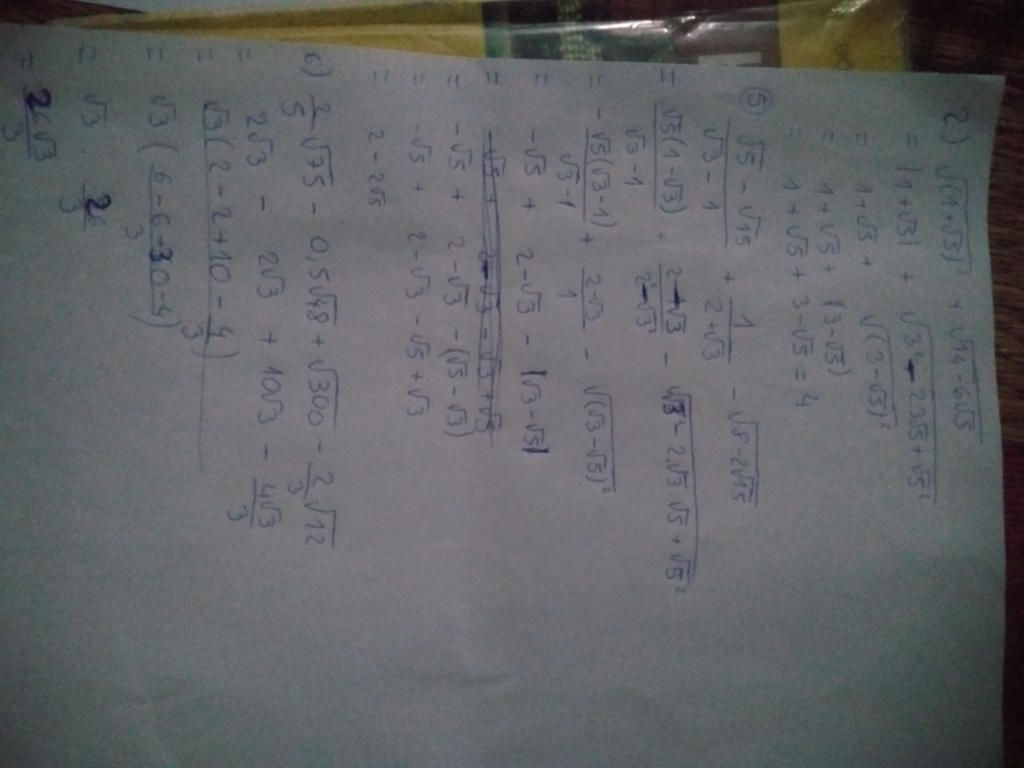 2) √(1+√3)² + √14-6√5
= |1+√3| + √3² - 2.3√5 + √5²
= 1+√3 + √(3-√5)²
= 1+√5 + (3-√5)
= 1+√5 + 3-√5 = 4
⑤ √5-√15/√3-1 + 1/2+√3 - √8-2√15
= √5(1-√3)/√3-1 + 2-√3/2²-√3² - √√3²-2.√3.√5+√5²
= -√5(√3-1)/√3-1 + 2-√3/1 - √(√3-√5)²
= -√5 + 2-√3 - |√3-√5|
= -√5 + 2-√3 - √3+√5
= -√5 + 2-√3 - (√5-√3)
= -√5 + 2-√3 - √5+√3
= 2 - 2√5
6) 2/5√75 - 0,5√48 + √300 - 2/3√12
= 2√3 - 2√3 + 10√3 - 4√3/3
= √3(2-2+10-4/3)
= √3(6-6+30-4/3)
= √3. 26/3
= 26√3/3